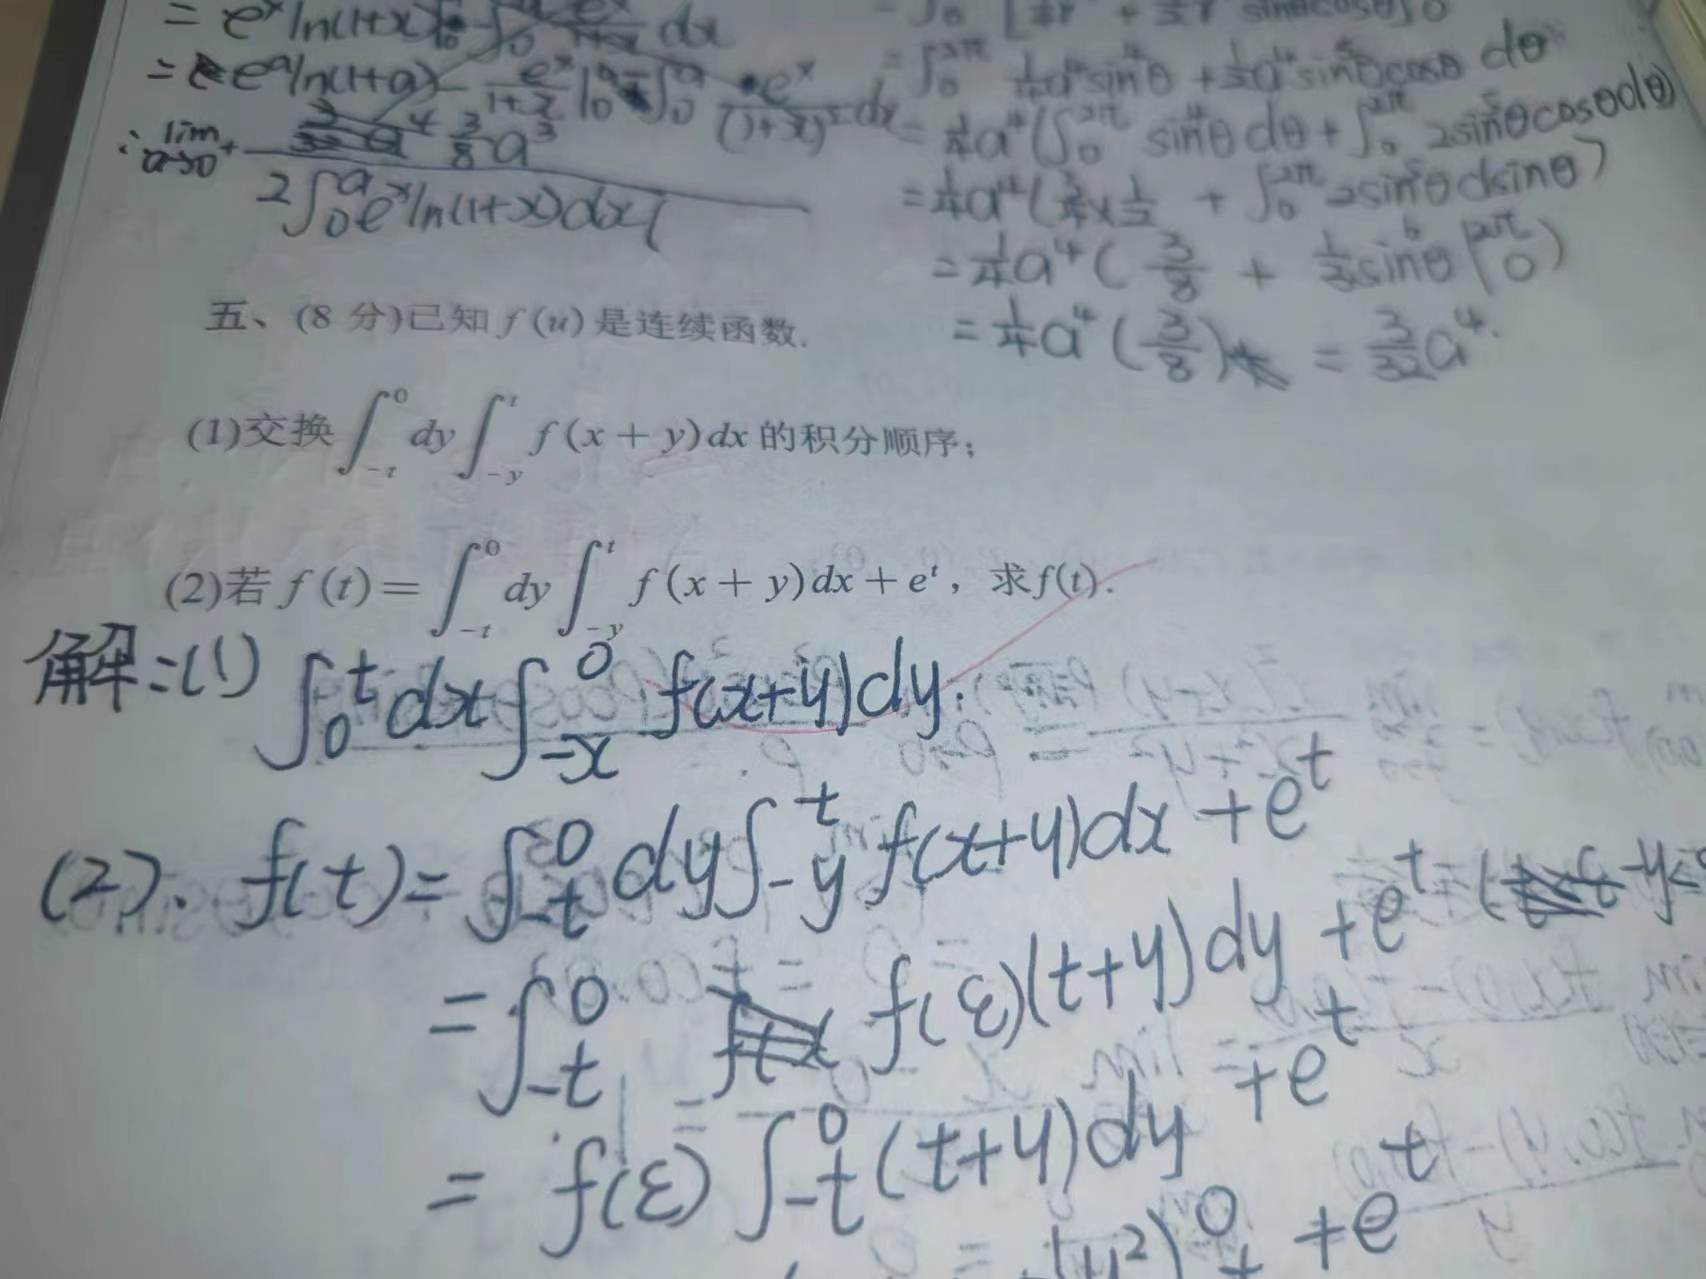 = eˣln(1+x)
dx
= eᵃln(1+a) - eˣ/(1+x) |₀ᵃ ∫₀ᵃ eˣ/(1+x)² dx
∴ lim a→0⁺ 3/8 a³
2∫₀ᵃeˣln(1+x)dx
= ∫₀^{2π} 1/4 a⁴sin⁴θ + 1/2 a⁴sin⁵θcosθ dθ
= 1/4 a⁴(∫₀^{2π} sin⁴θ dθ + ∫₀^{2π} 2sin⁵θcosθdθ)
= 1/4 a⁴(3/4 × 1/2 + ∫₀^{2π} 2sin⁵θdsinθ)
= 1/4 a⁴(3/8 + 1/3 sin⁶θ |₀^{2π})
= 1/4 a⁴(3/8) = 3/32 a⁴.
五、(8 分)已知 f(u) 是连续函数.
(1)交换 ∫_{-t}^{0} dy ∫_{-y}^{t} f(x + y)dx 的积分顺序;
(2)若 f(t) = ∫_{-t}^{0} dy ∫_{-y}^{t} f(x + y)dx + eᵗ, 求f(t).
解:(1) ∫₀ᵗ dx ∫_{-x}^{0} f(x+y)dy.
(2). f(t) = ∫_{-t}^{0} dy ∫_{-y}^{t} f(x+y)dx + eᵗ
= ∫_{-t}^{0} f(ε)(t+y)dy + eᵗ
= f(ε) ∫_{-t}^{0} (t+y)dy + eᵗ
+ eᵗ